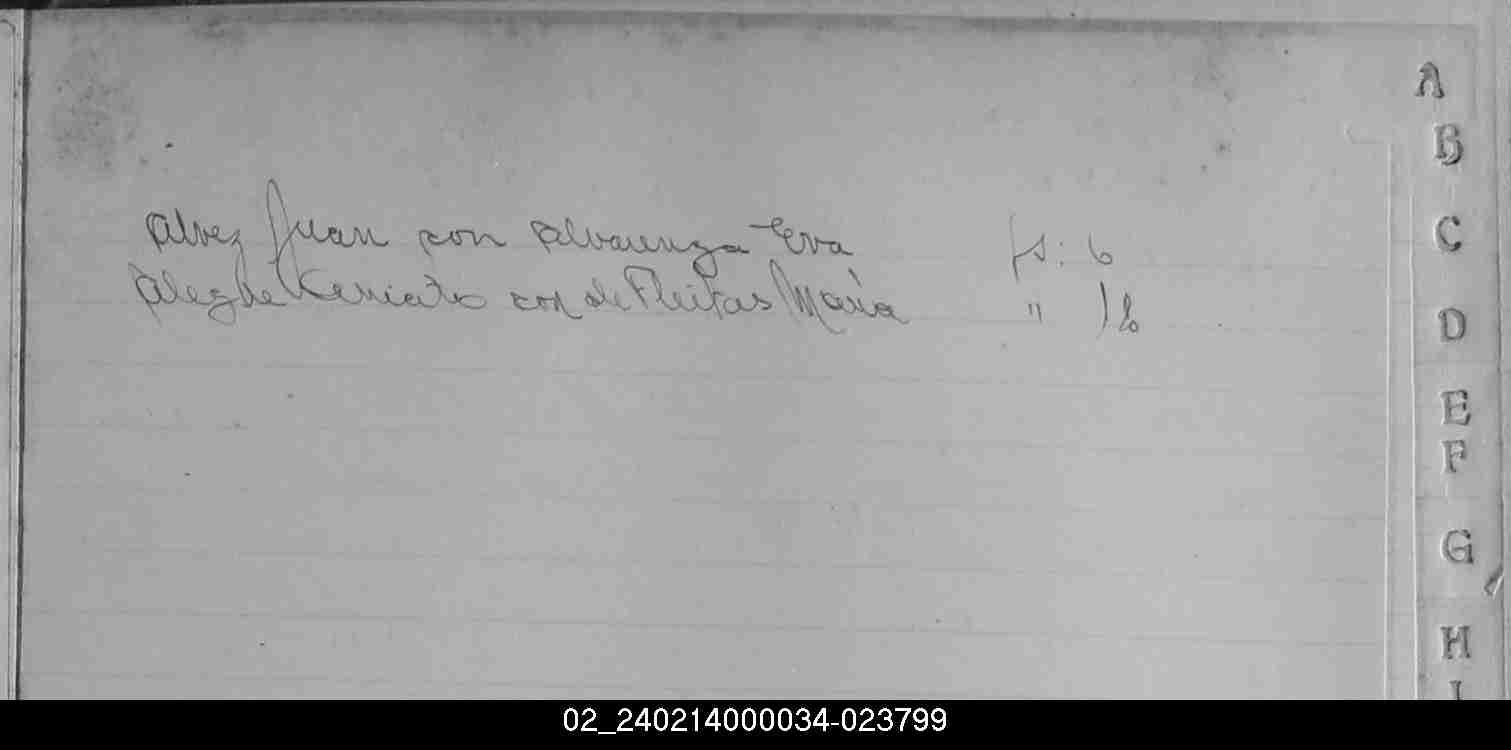 Alvez Juan con Alvarenga Eva fs: 6
Alegre con de Fleitas María "
A
B
C
D
E
F
G
H
I
02_240214000034-023799